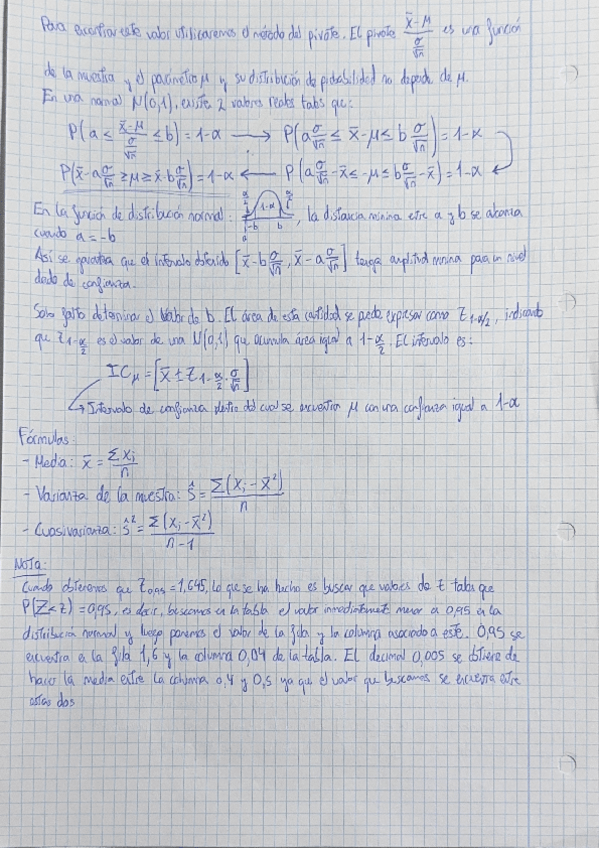 Para encontrar este valor utilizaremos el método del pivote. El pivote (x̄-μ)/(σ/√n) es una función
de la muestra y el parámetro μ y su distribución de probabilidad no depende de μ.
En una normal N(0,1), existe 2 valores reales tabs que:
P(a ≤ (x̄-μ)/(σ/√n) ≤ b) = 1-α → P(a σ/√n ≤ x̄-μ ≤ b σ/√n) = 1-α
P(x̄-a σ/√n ≥ μ ≥ x̄-b σ/√n) = 1-α ← P(a σ/√n - x̄ ≤ -μ ≤ b σ/√n - x̄) = 1-α
En la función de distribución normal: α/2 1-α α/2 -b b a, la distancia mínima entre a y b se alcanza
cuando a = -b
Así se garantiza que el intervalo obtenido [x̄-b σ/√n, x̄-a σ/√n] tenga amplitud mínima para un nivel
dado de confianza.
Solo falta determinar el valor de b. El área de esta cantidad se puede expresar como Z₁₋α/2, indicando
que Z₁₋α/2 es el valor de una N(0,1) que acumula área igual a 1-α/2. El intervalo es:
ICμ = [x̄ ± Z₁₋α/2 · σ/√n]
→ Intervalo de confianza dentro del cual se encuentra μ con una confianza igual a 1-α
Fórmulas:
- Media: x̄ = Σxᵢ/n
- Varianza de la muestra: Ŝ = Σ(xᵢ-x̄²)/n
- Cuasivarianza: Ŝ² = Σ(xᵢ-x̄²)/(n-1)
Nota:
Cuando obtenemos que Z₀,₉₅ = 1,645, lo que se ha hecho es buscar que valores de t tabs que
P(Z<z) = 0,95, es decir, buscamos en la tabla el valor inmediatamente menor a 0,95 en la
distribución normal y luego ponemos el valor de la fila y la columna asociado a este. 0,95 se
encuentra en la fila 1,6 y la columna 0,04 de la tabla. El decimal 0,005 se obtiene de
hacer la media entre la columna 0,4 y 0,5 ya que el valor que buscamos se encuentra entre
estas dos